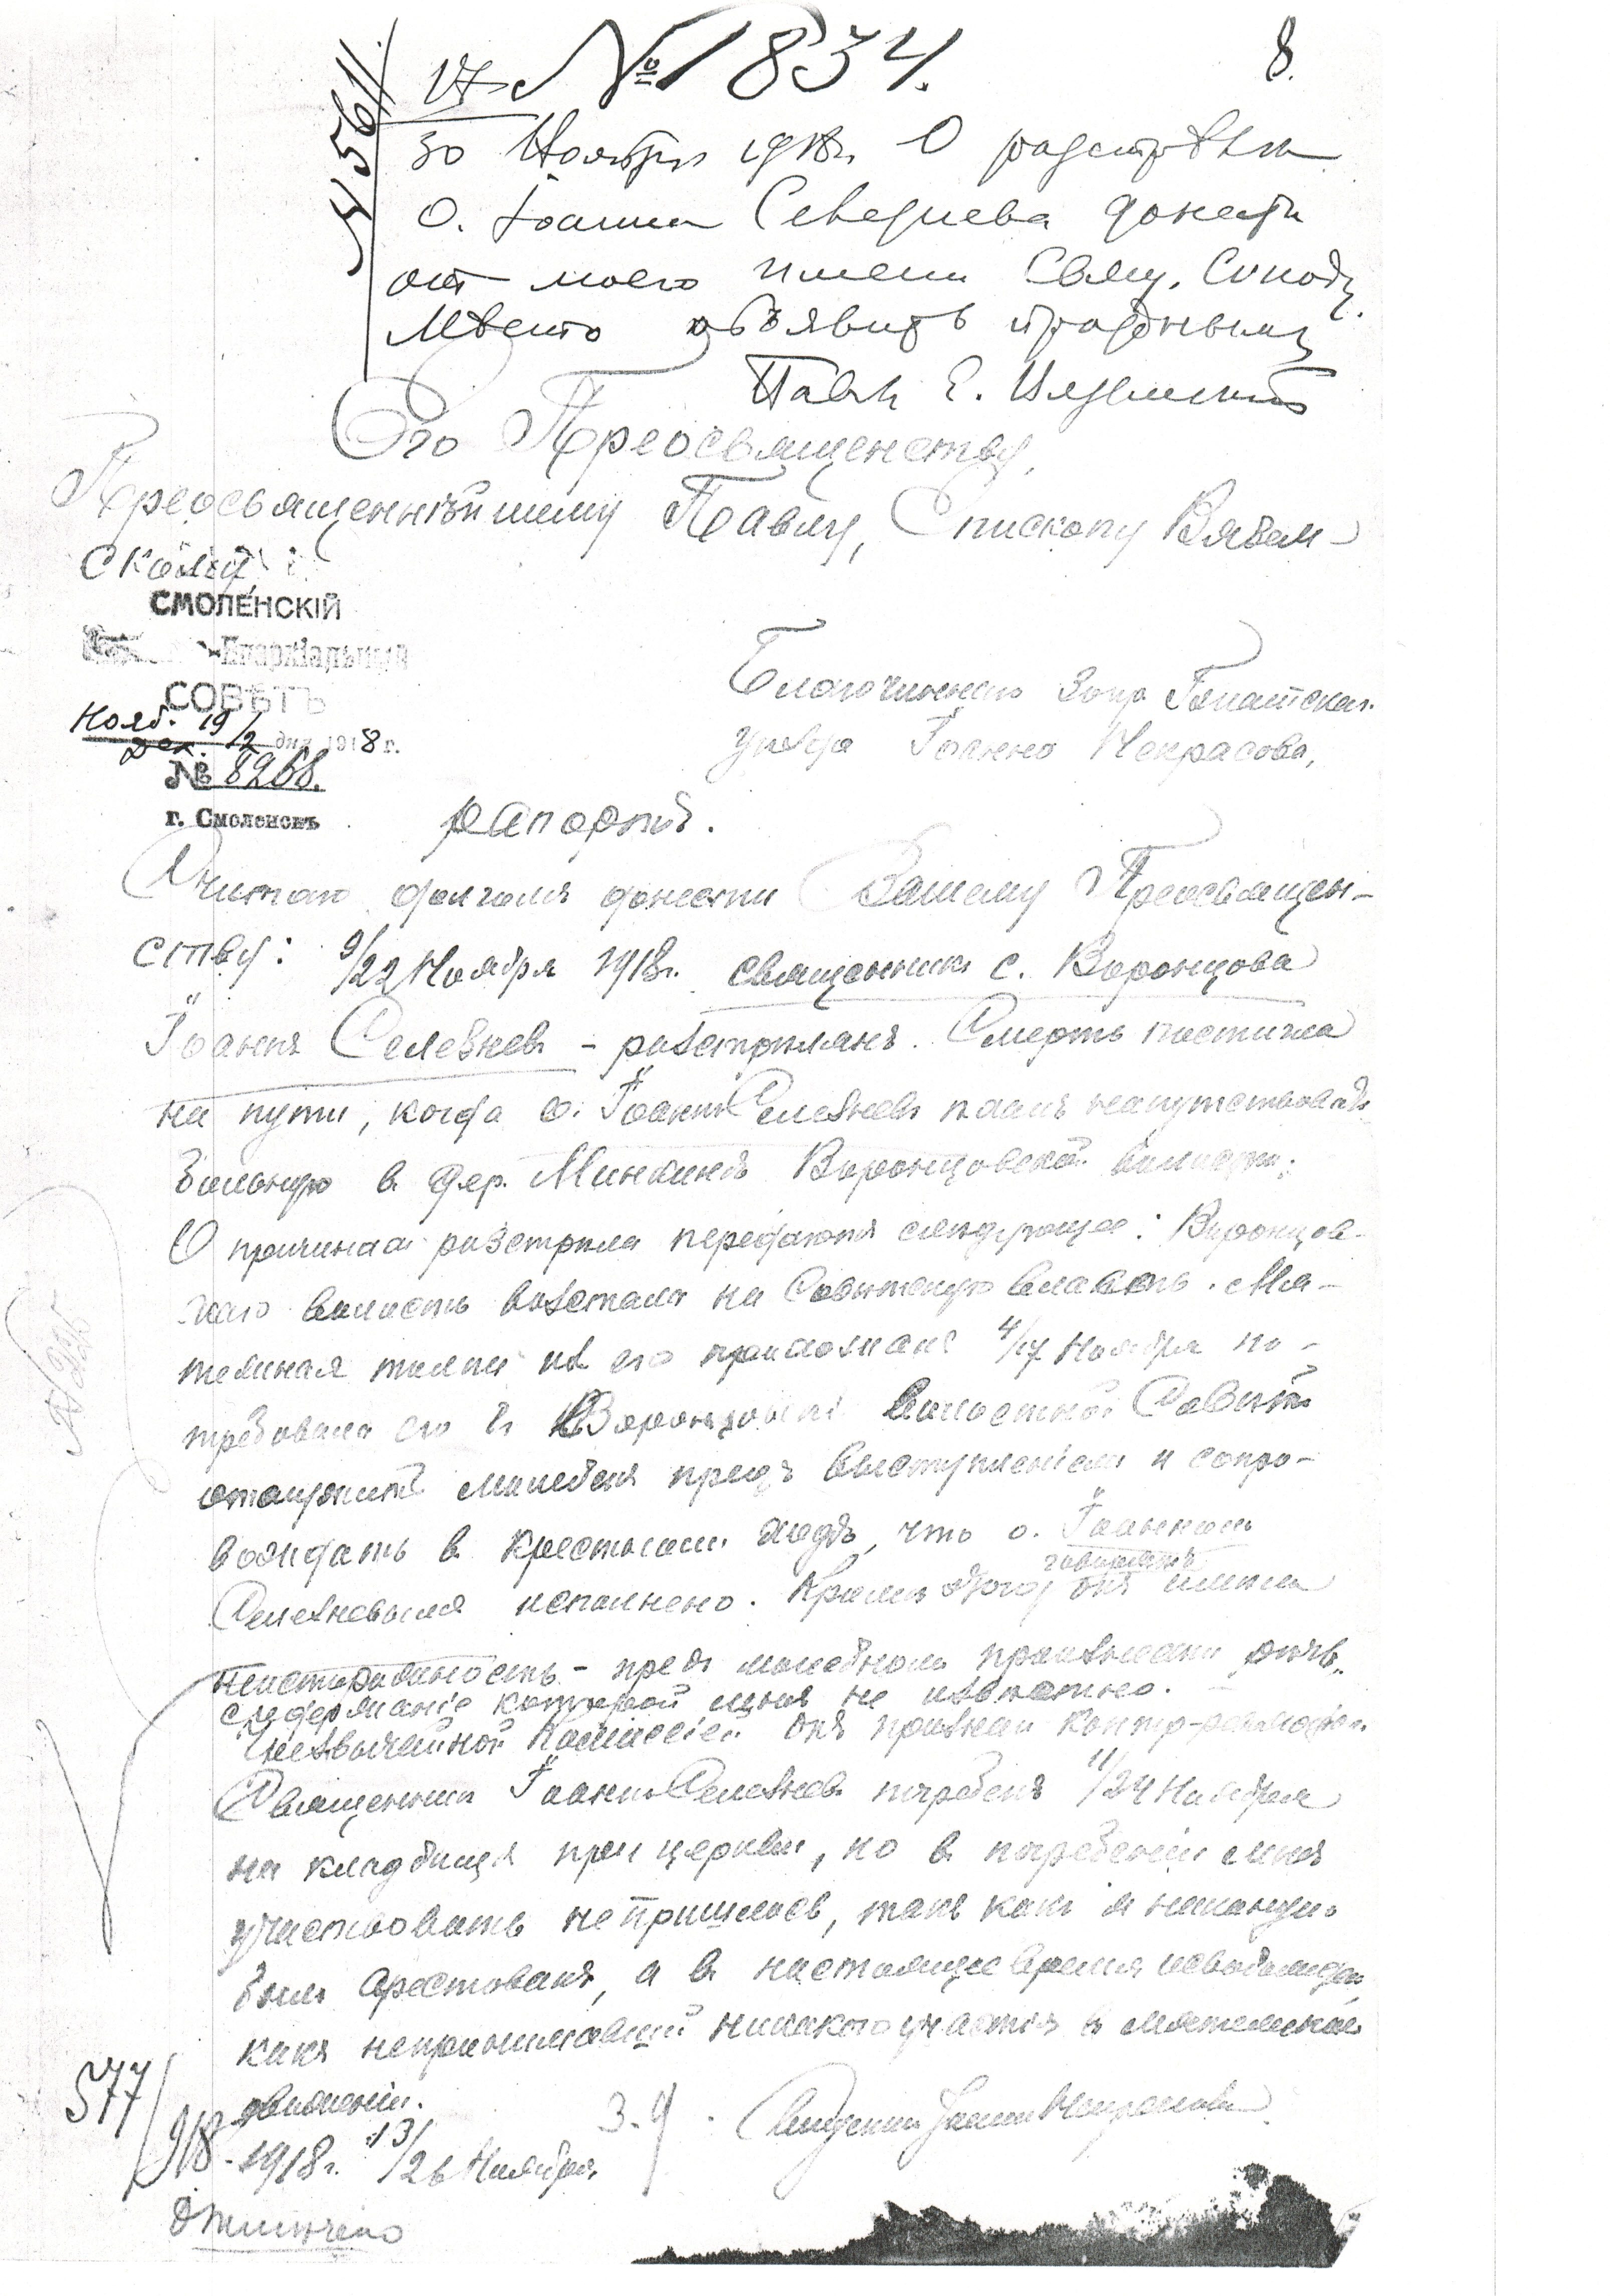 № 1834.
8.
4561.
30 Ноября 1918г. О разстрѣлѣ
О. Іоанна Селезнева донести
отъ моего имени Свящ. Синоду.
Мѣсто объявить празднымъ
Павлъ Е. Вяземскій
Его Преосвященству,
Преосвященнѣйшему Павлу, Епископу Вязем-
скому
СМОЛЕНСКІЙ
Епархіальный
СОВѢТЪ
Нояб. 19/
Дек. /2 дня 1918 г.
№ 8268.
г. Смоленскъ
Благочиннаго 3 окр. Гжатскаго
уѣзда Іоанна Некрасова,
рапортъ.
Считаю долгомъ донести Вашему Преосвящен-
ству: 9/22 Ноября 1918г. священникъ с. Воронцова
Іоаннъ Селезневъ - разстрѣлянъ. Смерть постигла
на пути, когда о. Іоаннъ Селезневъ ѣхалъ напутствовать
больную в дер. Воронцовской волости;
О причинахъ разстрѣла передаютъ слѣдующее: Воронцов-
ская волость возстала на Совѣтскую власть. Мя-
тежная толпа изъ его прихожанъ 4/17 Ноября по-
требовала его въ Воронцовскій волостной Совѣтъ
отслужить молебенъ предъ выступленіемъ и сопро-
вождать в крестномъ ходѣ, что о. Іоанномъ
Селезневымъ исполнено. Кромѣ этого, говорятъ онъ имѣлъ
неосторожность - предъ молебномъ произнести рѣчь,
содержаніе которой мнѣ не извѣстно.
Чрезвычайной Комиссіей онъ признанъ контр-революціон.
Священникъ Іоаннъ Селезневъ погребенъ 11/24 Ноября
на кладбищѣ при церкви, но в погребеніи мнѣ
участвовать не пришлось, такъ какъ я наканунѣ
былъ арестованъ, а в настоящее время освобожденъ,
какъ непринимавшій никакого участія в мятежномъ
движеніи.
577/918. 1918г. 13/26 Ноября
Священникъ Іоаннъ Некрасовъ